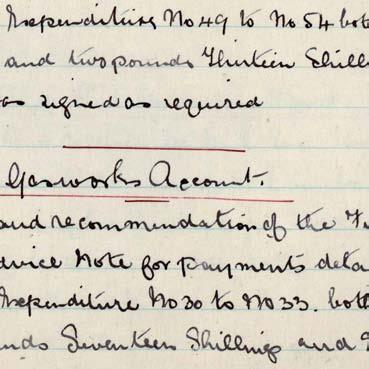 Expenditure No 49 to No 54 bot
and two pounds Thirteen Shill
as signed as required
Gasworks Account.
and recommendation of the F
dvice Note for payments deta
Expenditure No 30 to No 33. both
nds Seventeen Shillings and